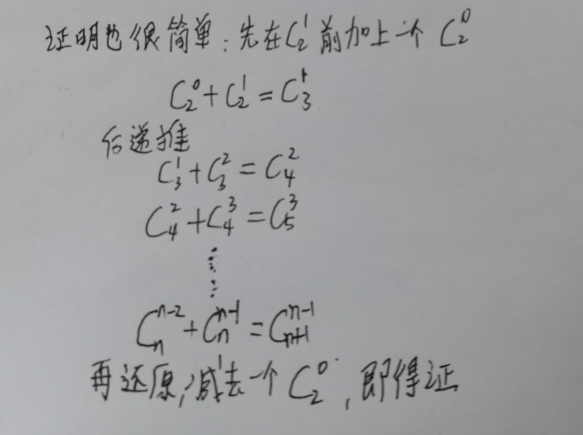 证明也很简单：先在C₂¹前加上一个C₂⁰
C₂⁰+C₂¹=C₃¹
后递推
C₃¹+C₃²=C₄²
C₄²+C₄³=C₅³
⋮
Cₙⁿ⁻²+Cₙⁿ⁻¹=Cₙ₊₁ⁿ⁻¹
再还原，减去一个C₂⁰，即得证